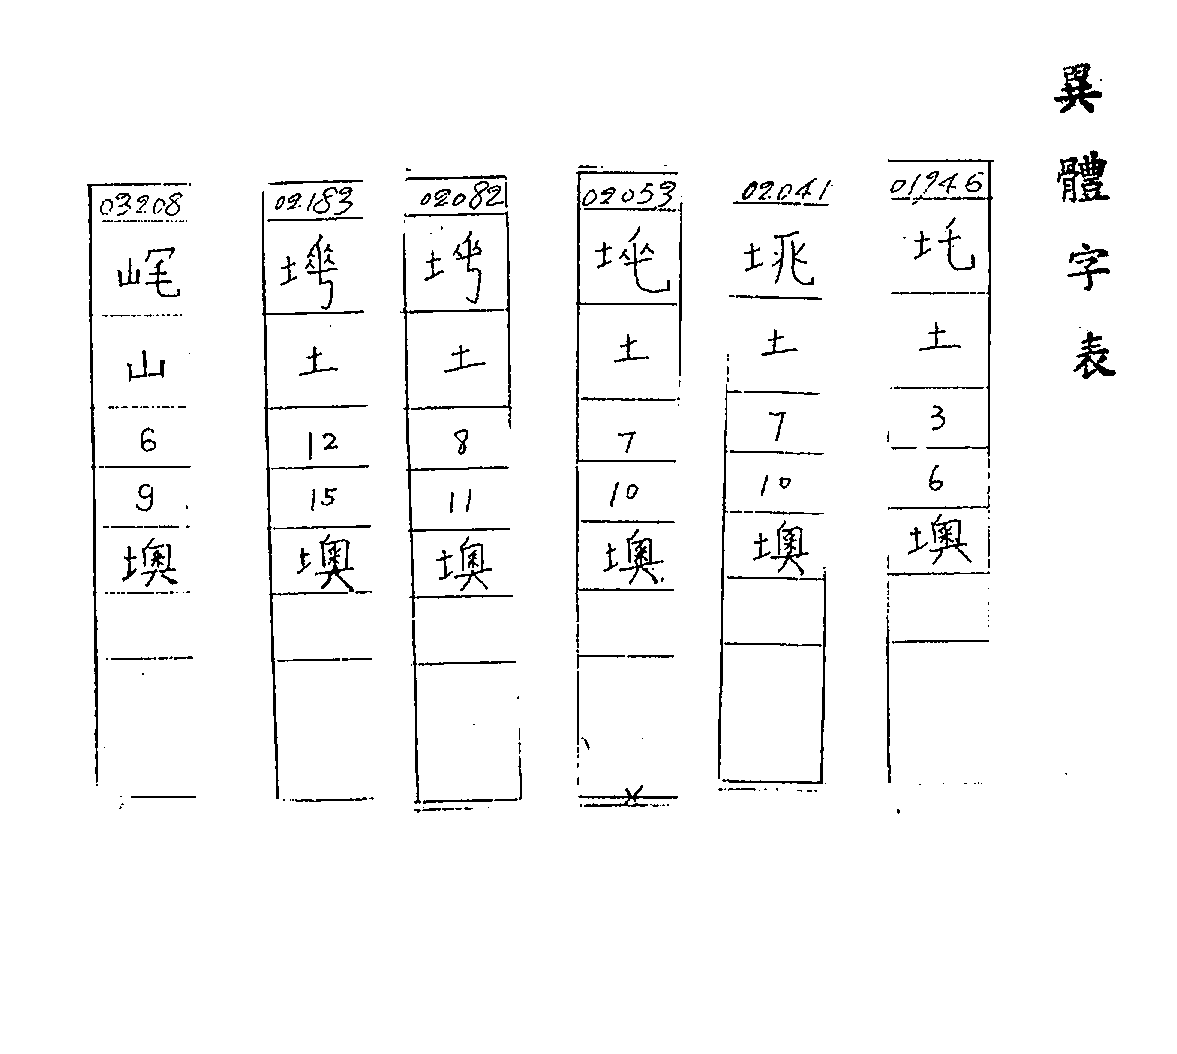 異體字表
01946
圫
土
3
6
墺
02041
土
7
10
墺
02053
土
7
10
墺
02082
土
8
11
墺
02183
土
12
15
墺
03208
山
6
9
墺